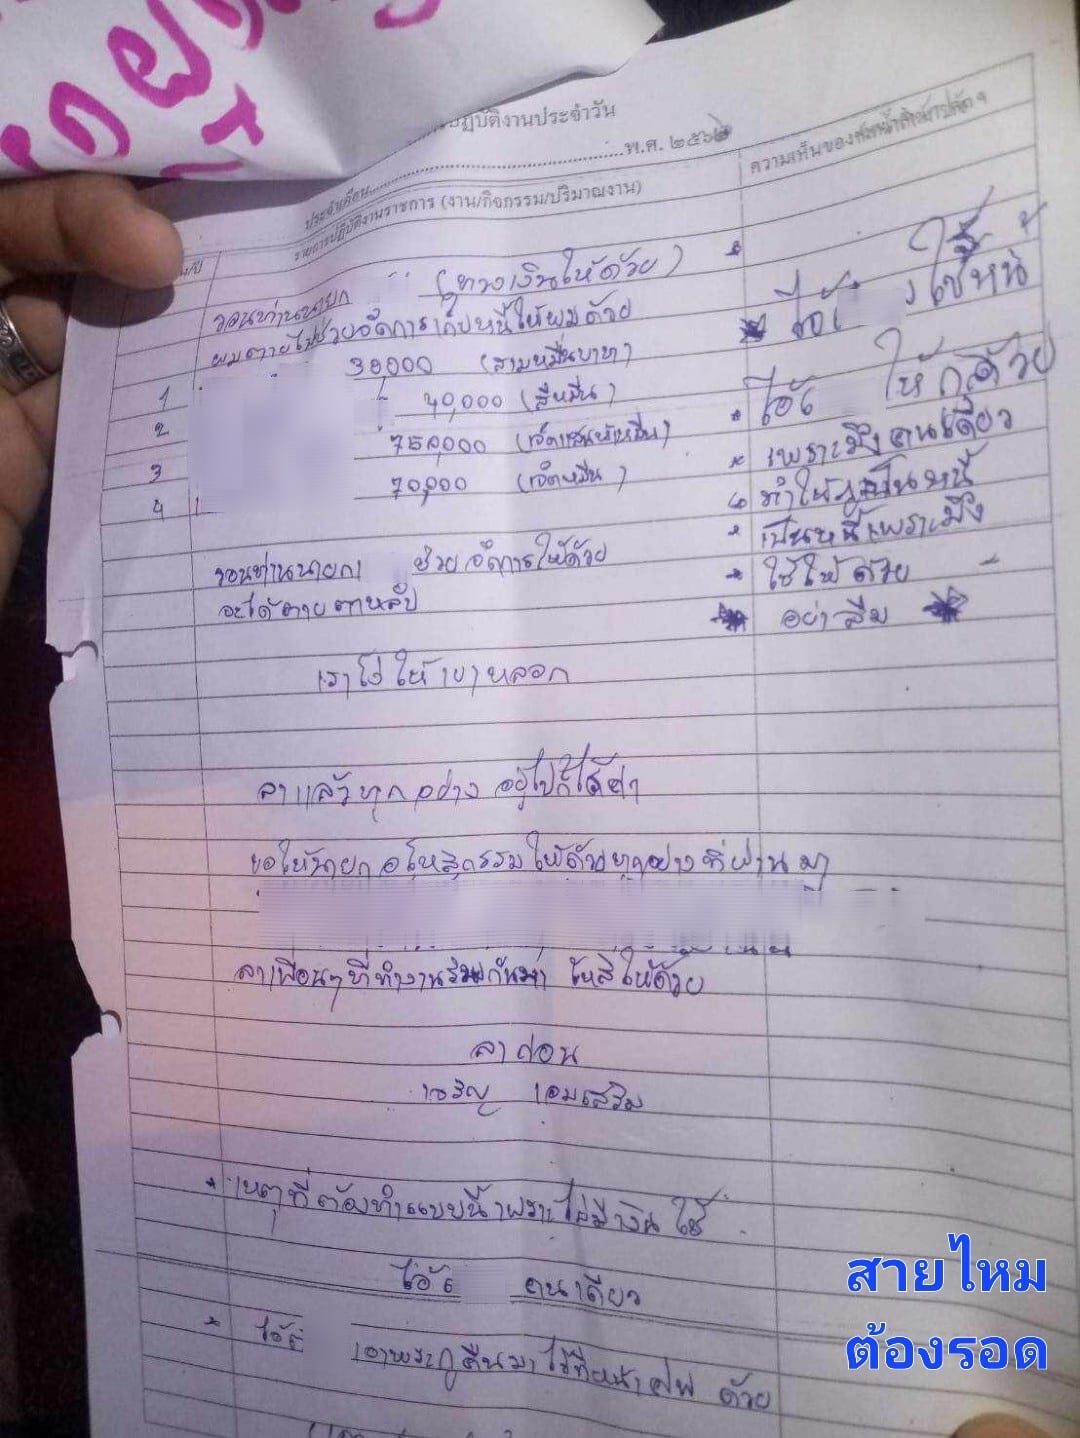 ปฏิบัติงานประจำวัน
ประจำเดือน............พ.ศ. ๒๕๖๒
รายการปฏิบัติงานราชการ (งาน/กิจกรรม/ปริมาณงาน)
ความเห็นของ
วอนท่านนายก (ทวงเงินให้ด้วย)
ผมตายไปช่วยจัดการเก็บหนี้ให้ผมด้วย
1 30000 (สามหมื่นบาท)
2 40,000 (สี่หมื่น)
3 750,000 (เจ็ดแสนห้าหมื่น)
4 70,000 (เจ็ดหมื่น)
วอนท่านนายก ช่วยจัดการให้ด้วย
จะได้ตายตาหลับ
ใช้หนี้
ไอ้ ให้กูด้วย
เพราะมึงคนเดียว
ทำให้กูเป็นหนี้
เป็นหนี้เพราะมึง
ใช้ให้ด้วย
อย่าลืม
เราโง่ให้เขาหลอก
ลาแล้วทุกอย่าง อยู่ไปก็ไร้ค่า
ขอให้นายกอโหสิกรรมให้ด้วยทุกอย่างที่ผ่านมา
ลาเพื่อนๆที่ทำงานร่วมกันมา โหสิให้ด้วย
ลาก่อน
เจริญ เอมเสริม
* เหตุที่ต้องทำแบบนี้เพราะไม่มีเงินใช้
ไอ้ คนเดียว
* ไอ้ เอาพระกูคืนมาไว้ที่หน้าศพ ด้วย
สายไหม
ต้องรอด